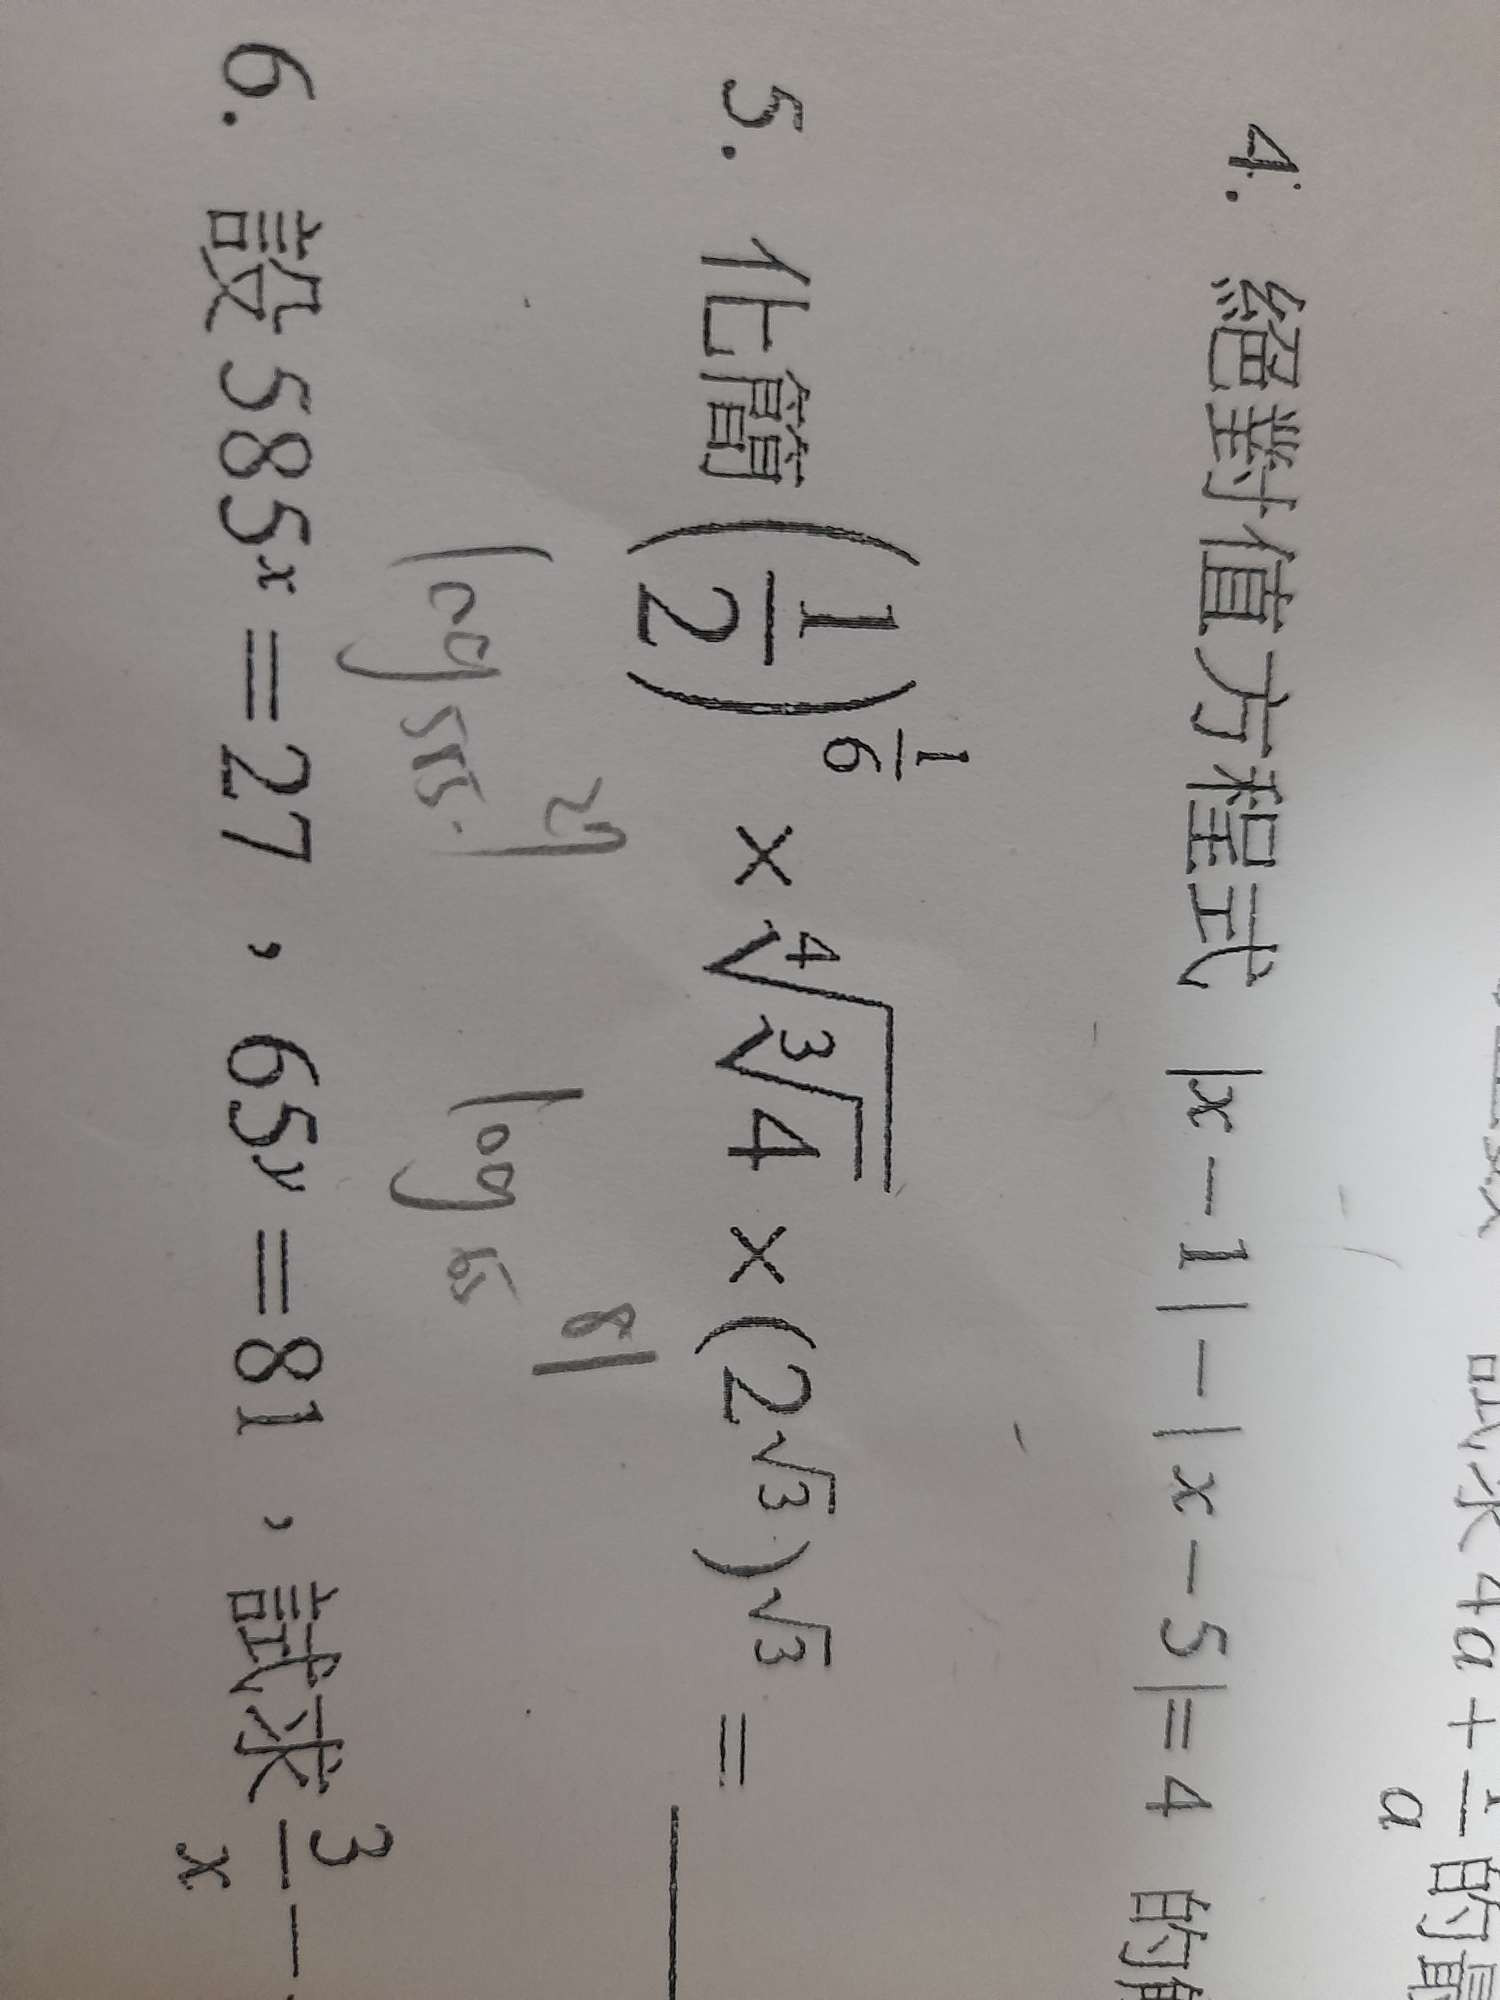 試求 4a + 1/a 的最
4. 絕對值方程式 |x − 1| − |x − 5| = 4 的解
5. 化簡 (1/2)^(1/6) × ⁴√(³√4) × (2^√3)^√3 = ____
log 585 27 log 65 81
6. 設 585^x = 27，65^y = 81，試求 3/x −